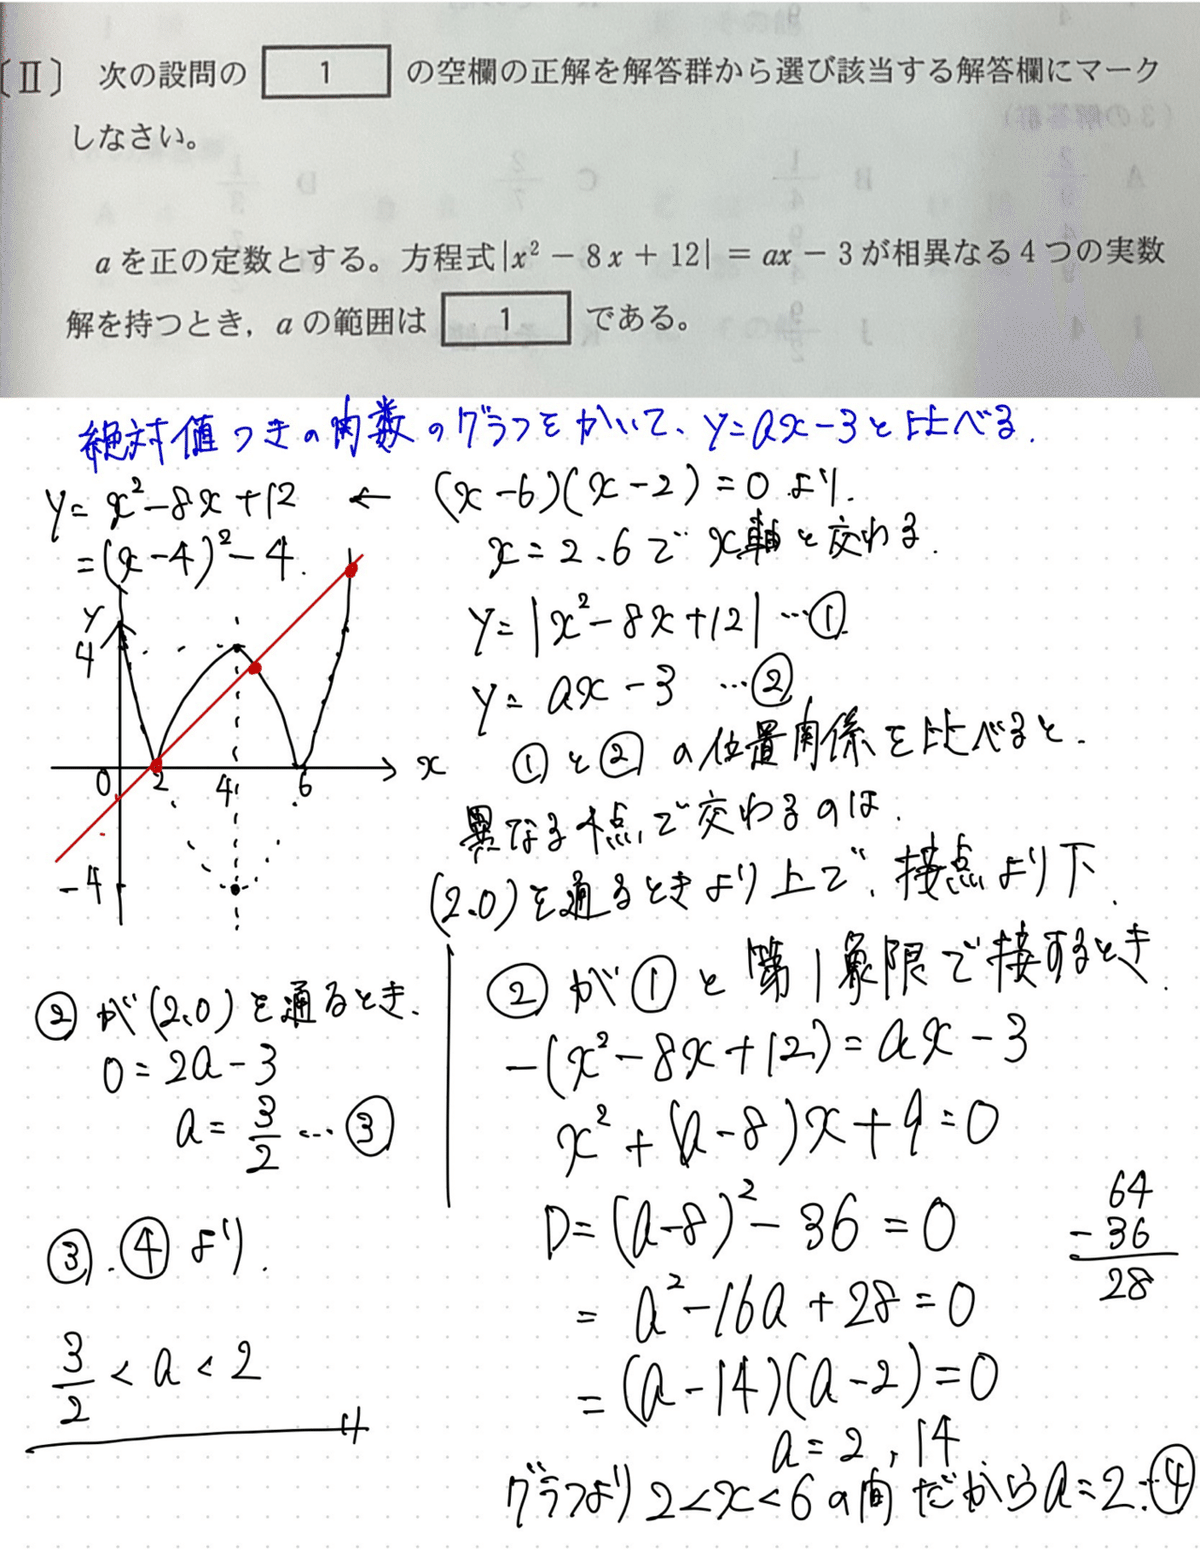 〔Ⅱ〕 次の設問の 1 の空欄の正解を解答群から選び該当する解答欄にマーク
しなさい。
aを正の定数とする。方程式|x² − 8x + 12| = ax − 3が相異なる4つの実数
解を持つとき，aの範囲は 1 である。
絶対値つきの関数のグラフをかいて、y=ax-3と比べる.
y=x²-8x+12 ← (x-6)(x-2)=0より.
=(x-4)²-4. x=2.6でx軸と交わる.
y=|x²-8x+12| …①
y=ax-3 …②
①と②の位置関係を比べると.
異なる4点で交わるのは.
(2.0)を通るときより上で、接点より下.
y
4
0 2 4 6 x
-4
②が(2.0)を通るとき.
0=2a-3
a=3/2 …③
③.④より.
3/2<a<2
②が①と第1象限で接するとき.
-(x²-8x+12)=ax-3
x²+(a-8)x+9=0
D=(a-8)²-36=0
=a²-16a+28=0
=(a-14)(a-2)=0
a=2,14
64
-36
28
グラフより2<x<6の間だからa=2…④